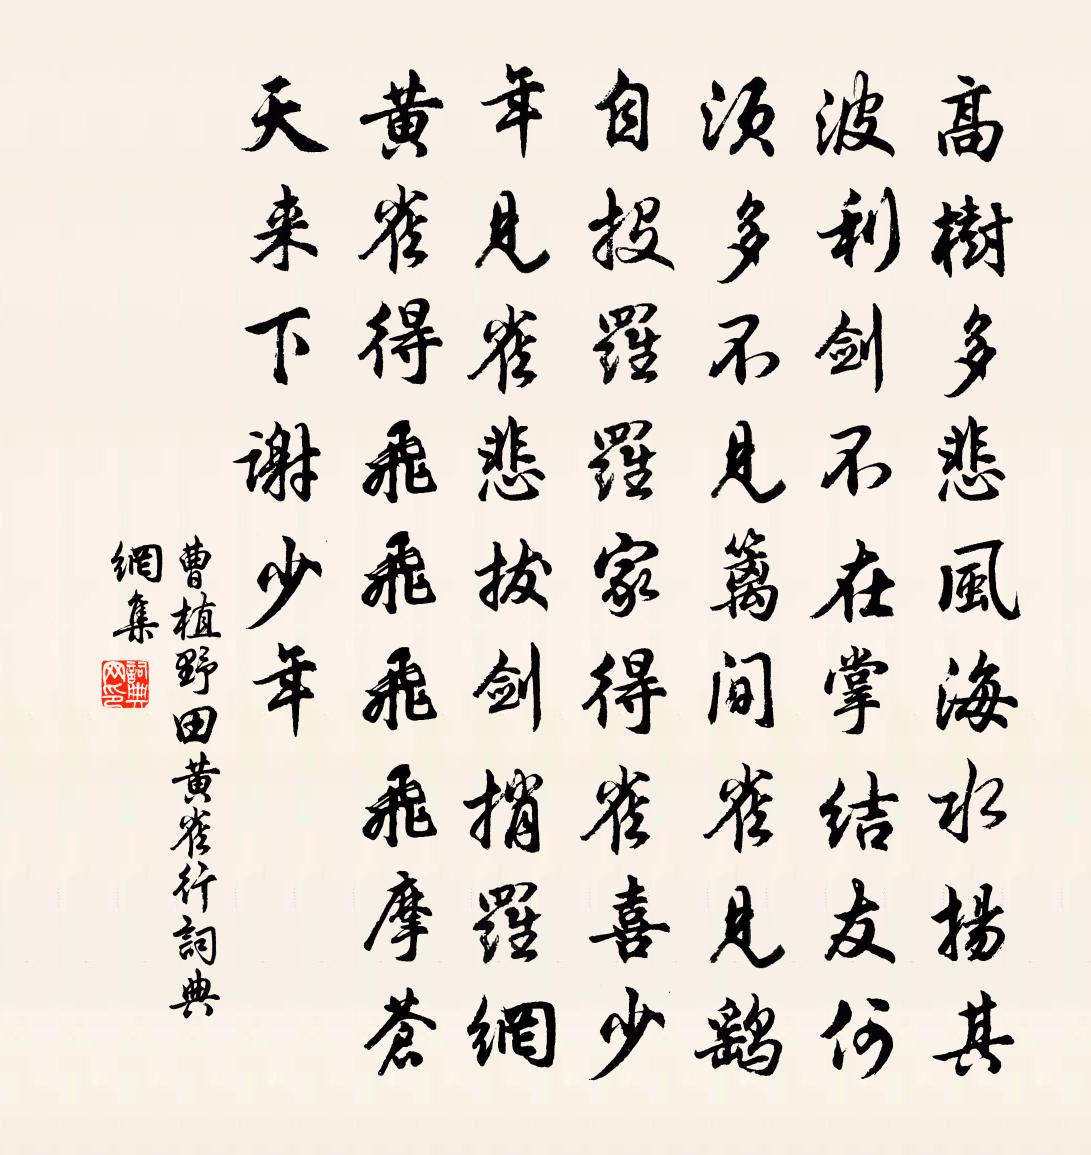 高樹多悲風海水揚其
波利剑不在掌结友何
须多不見籬间雀見鷂
自投羅羅家得雀喜少
年見雀悲拔剑捎羅網
黄雀得飛飛飛飛摩蒼
天来下谢少年
曹植野田黄雀行詞典
網集
詞典网印